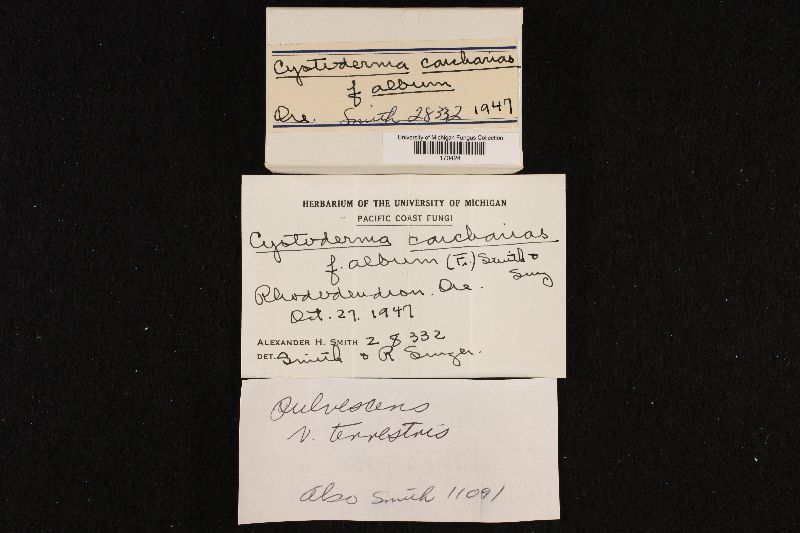 Cystoderma carcharias
f album
Ore. Smith 28332 1947
University of Michigan Fungus Collection
170424
HERBARIUM OF THE UNIVERSITY OF MICHIGAN
PACIFIC COAST FUNGI
Cystoderma carcharias
f. album (Fr.) Smith &
Sing
Rhododendron. Ore.
Oct. 27, 1947
ALEXANDER H. SMITH 28332
DET. Smith & R Singer.
Pulvescens
v. terrestris
Also Smith 11091